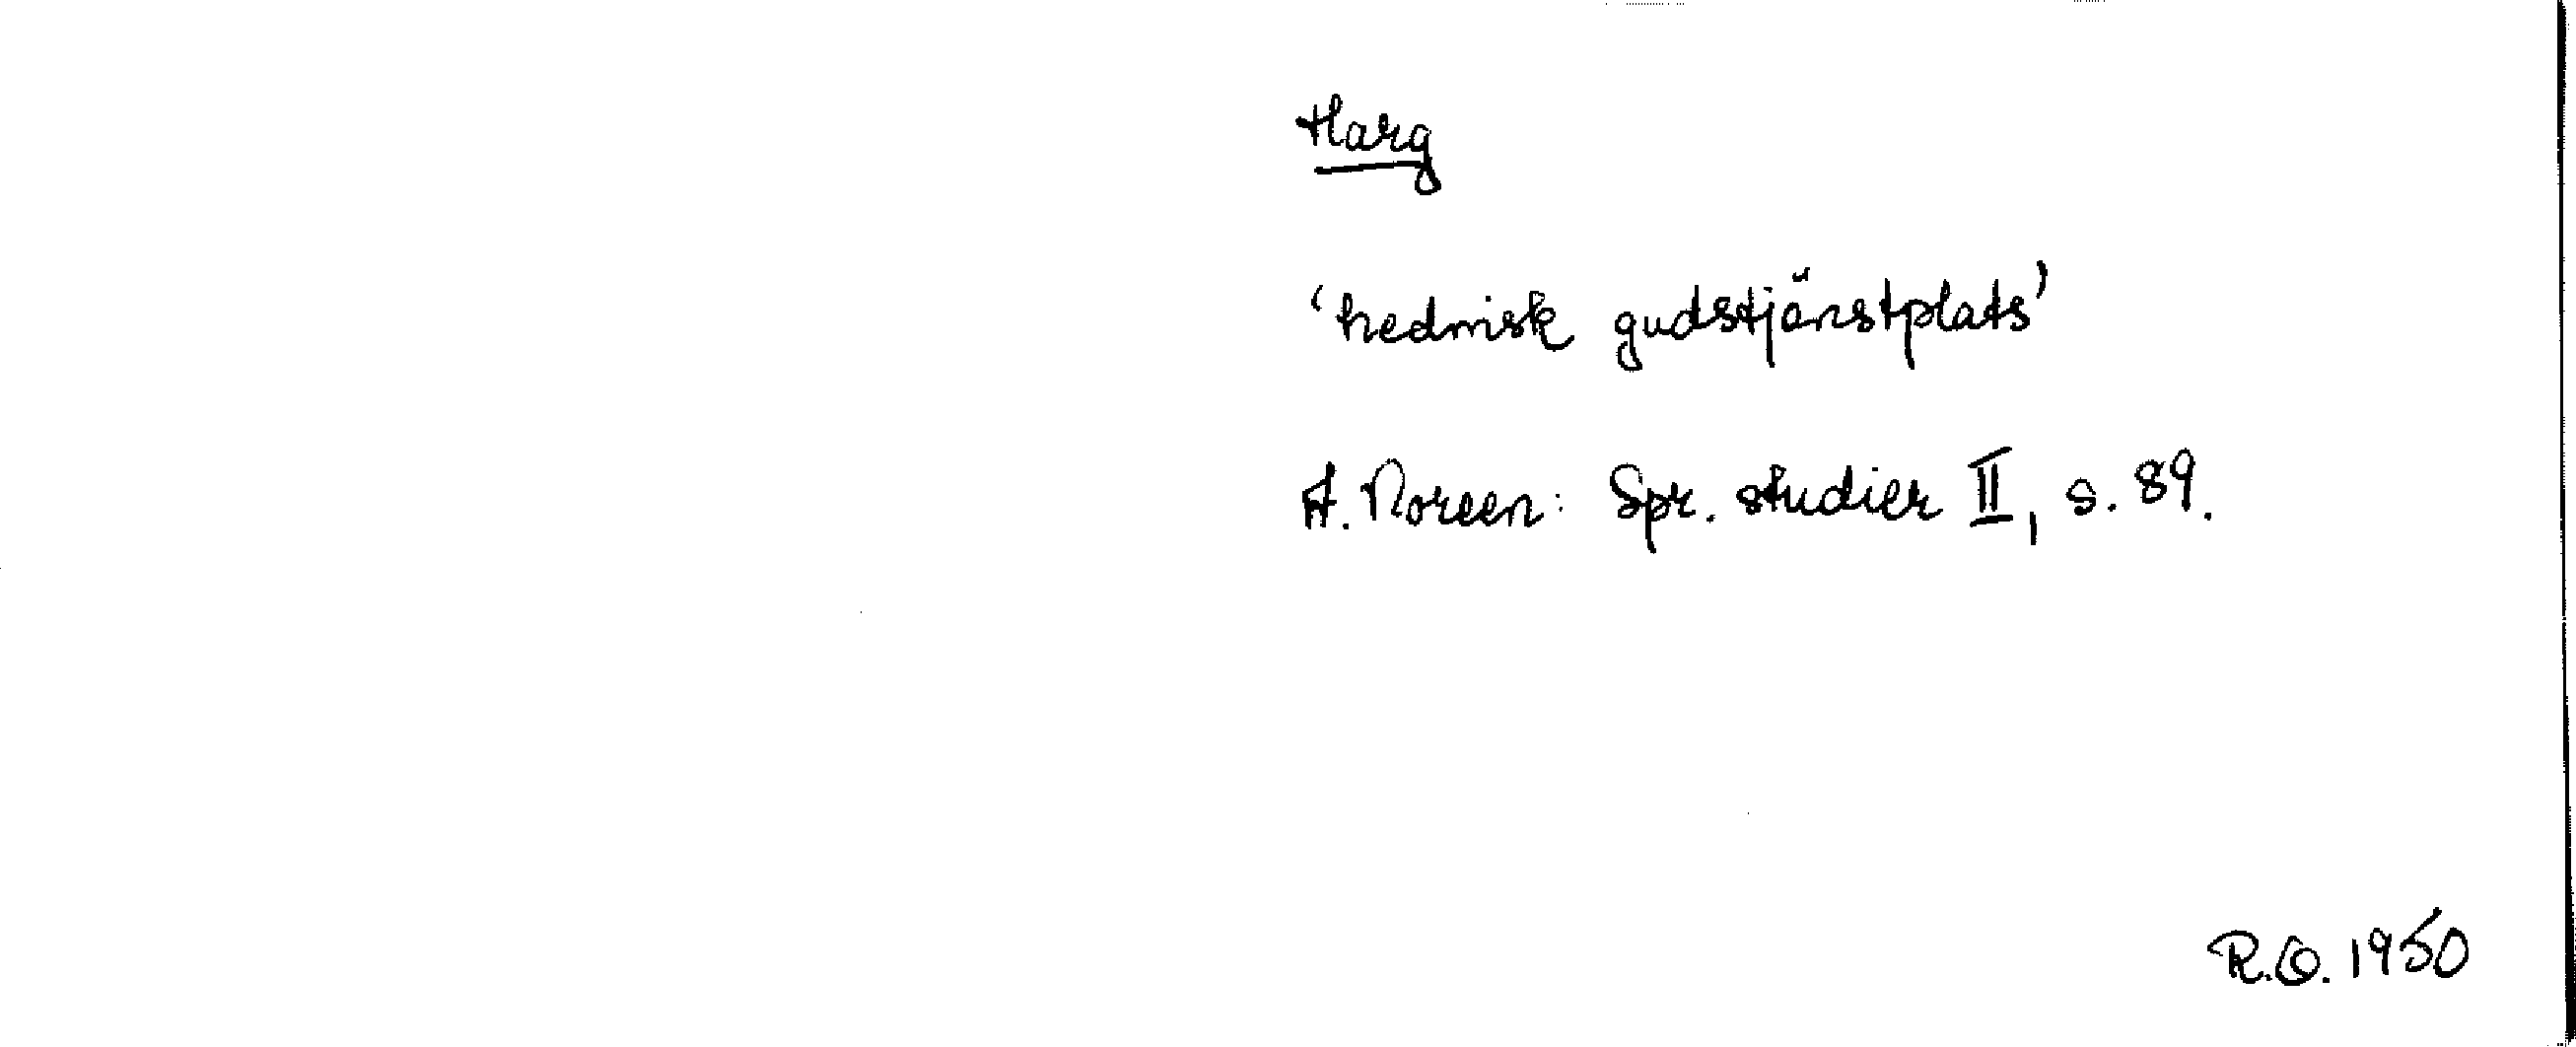 Harg
'hednisk gudstjänstplats'
A. Noreen: Spr. studier II, s. 89.
R.O. 1950